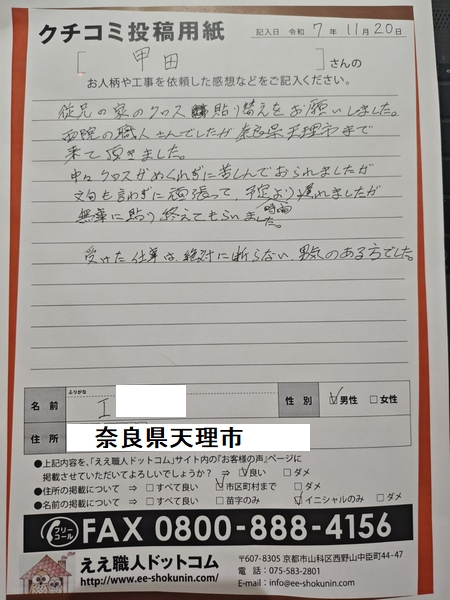 クチコミ投稿用紙
記入日 令和 7 年 11 月 20 日
[ 甲田 ] さんの
お人柄や工事を依頼した感想などをご記入ください。
従兄の家のクロス貼り替えをお願いしました。
の職人さんでしたが奈良県天理市まで
来て頂きました。
中々クロスがめくれずに苦しんでおられましたが
文句も言わずに頑張って、予定より時間遅れましたが
無事に貼り終えてもらいました。
受けた仕事は絶対に断らない、男気のある方でした。
ふりがな
名前 I 性別 ☑男性 □女性
住所 奈良県天理市
●上記内容を、「ええ職人ドットコム」サイト内の『お客様の声』ページに
掲載させていただいてよろしいでしょうか? ⇒ ☑良い □ダメ
●住所の掲載について ⇒ □すべて良い ☑市区町村まで □ダメ
●名前の掲載について ⇒ □すべて良い □苗字のみ ☑イニシャルのみ □ダメ
フリーコール FAX 0800-888-4156
ええ職人ドットコム
http://www.ee-shokunin.com/
〒607-8305 京都市山科区西野山中臣町44-47
電話:075-583-2801
E-mail:info@ee-shokunin.com